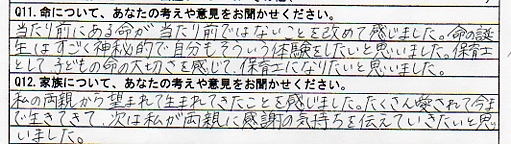 Q11. 命について、あなたの考えや意見をお聞かせください。
当たり前にある命が当たり前ではないことを改めて感じました。命の誕
生はすごく神秘的で自分もそういう体験をしたいと思いました。保育士
として子どもの命の大切さを感じて保育士になりたいと思いました。
Q12. 家族について、あなたの考えや意見をお聞かせください。
私の両親から望まれて生まれてきたことを感じました。たくさん愛されて今ま
で生きてきて、次は私が両親に感謝の気持ちを伝えていきたいと思
いました。